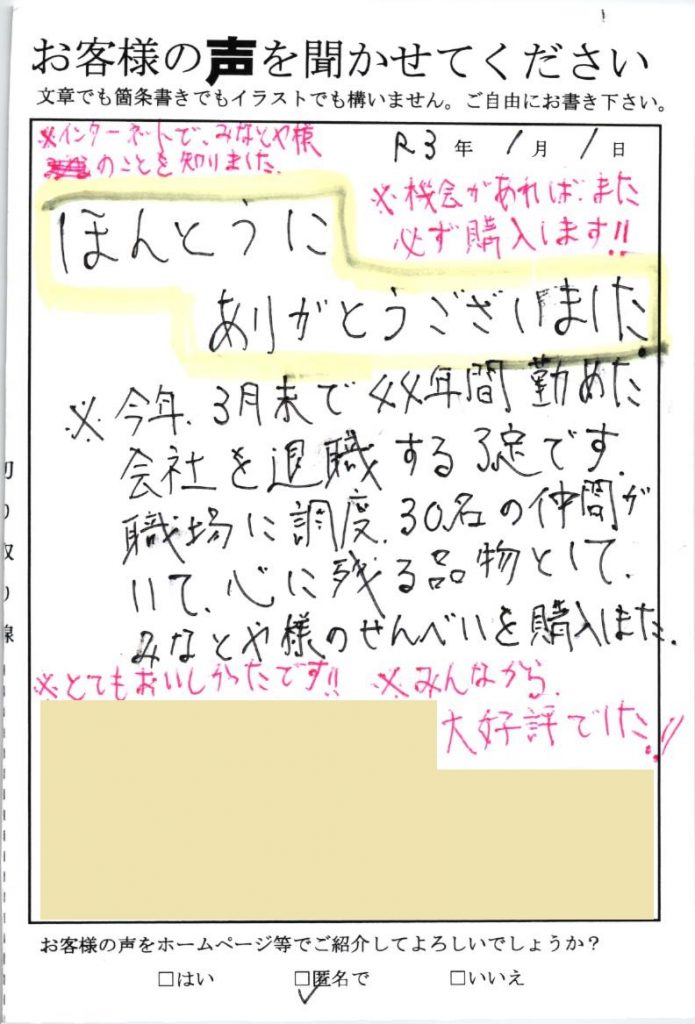 お客様の声を聞かせてください
文章でも箇条書きでもイラストでも構いません。ご自由にお書き下さい。
※インターネットで、みなとや様
のことを知りました。
R3年1月1日
※機会があれば、また
必ず購入します!!
ほんとうに
ありがとうございました。
※今年、3月末で44年間勤めた
会社を退職する予定です。
職場に調度、30名の仲間が
いて、心に残る品物として、
みなとや様のせんべいを購入しました。
※とてもおいしかったです!!
※みんなから、
大好評でした!!
お客様の声をホームページ等でご紹介してよろしいでしょうか?
□はい □匿名で □いいえ
切り取り線